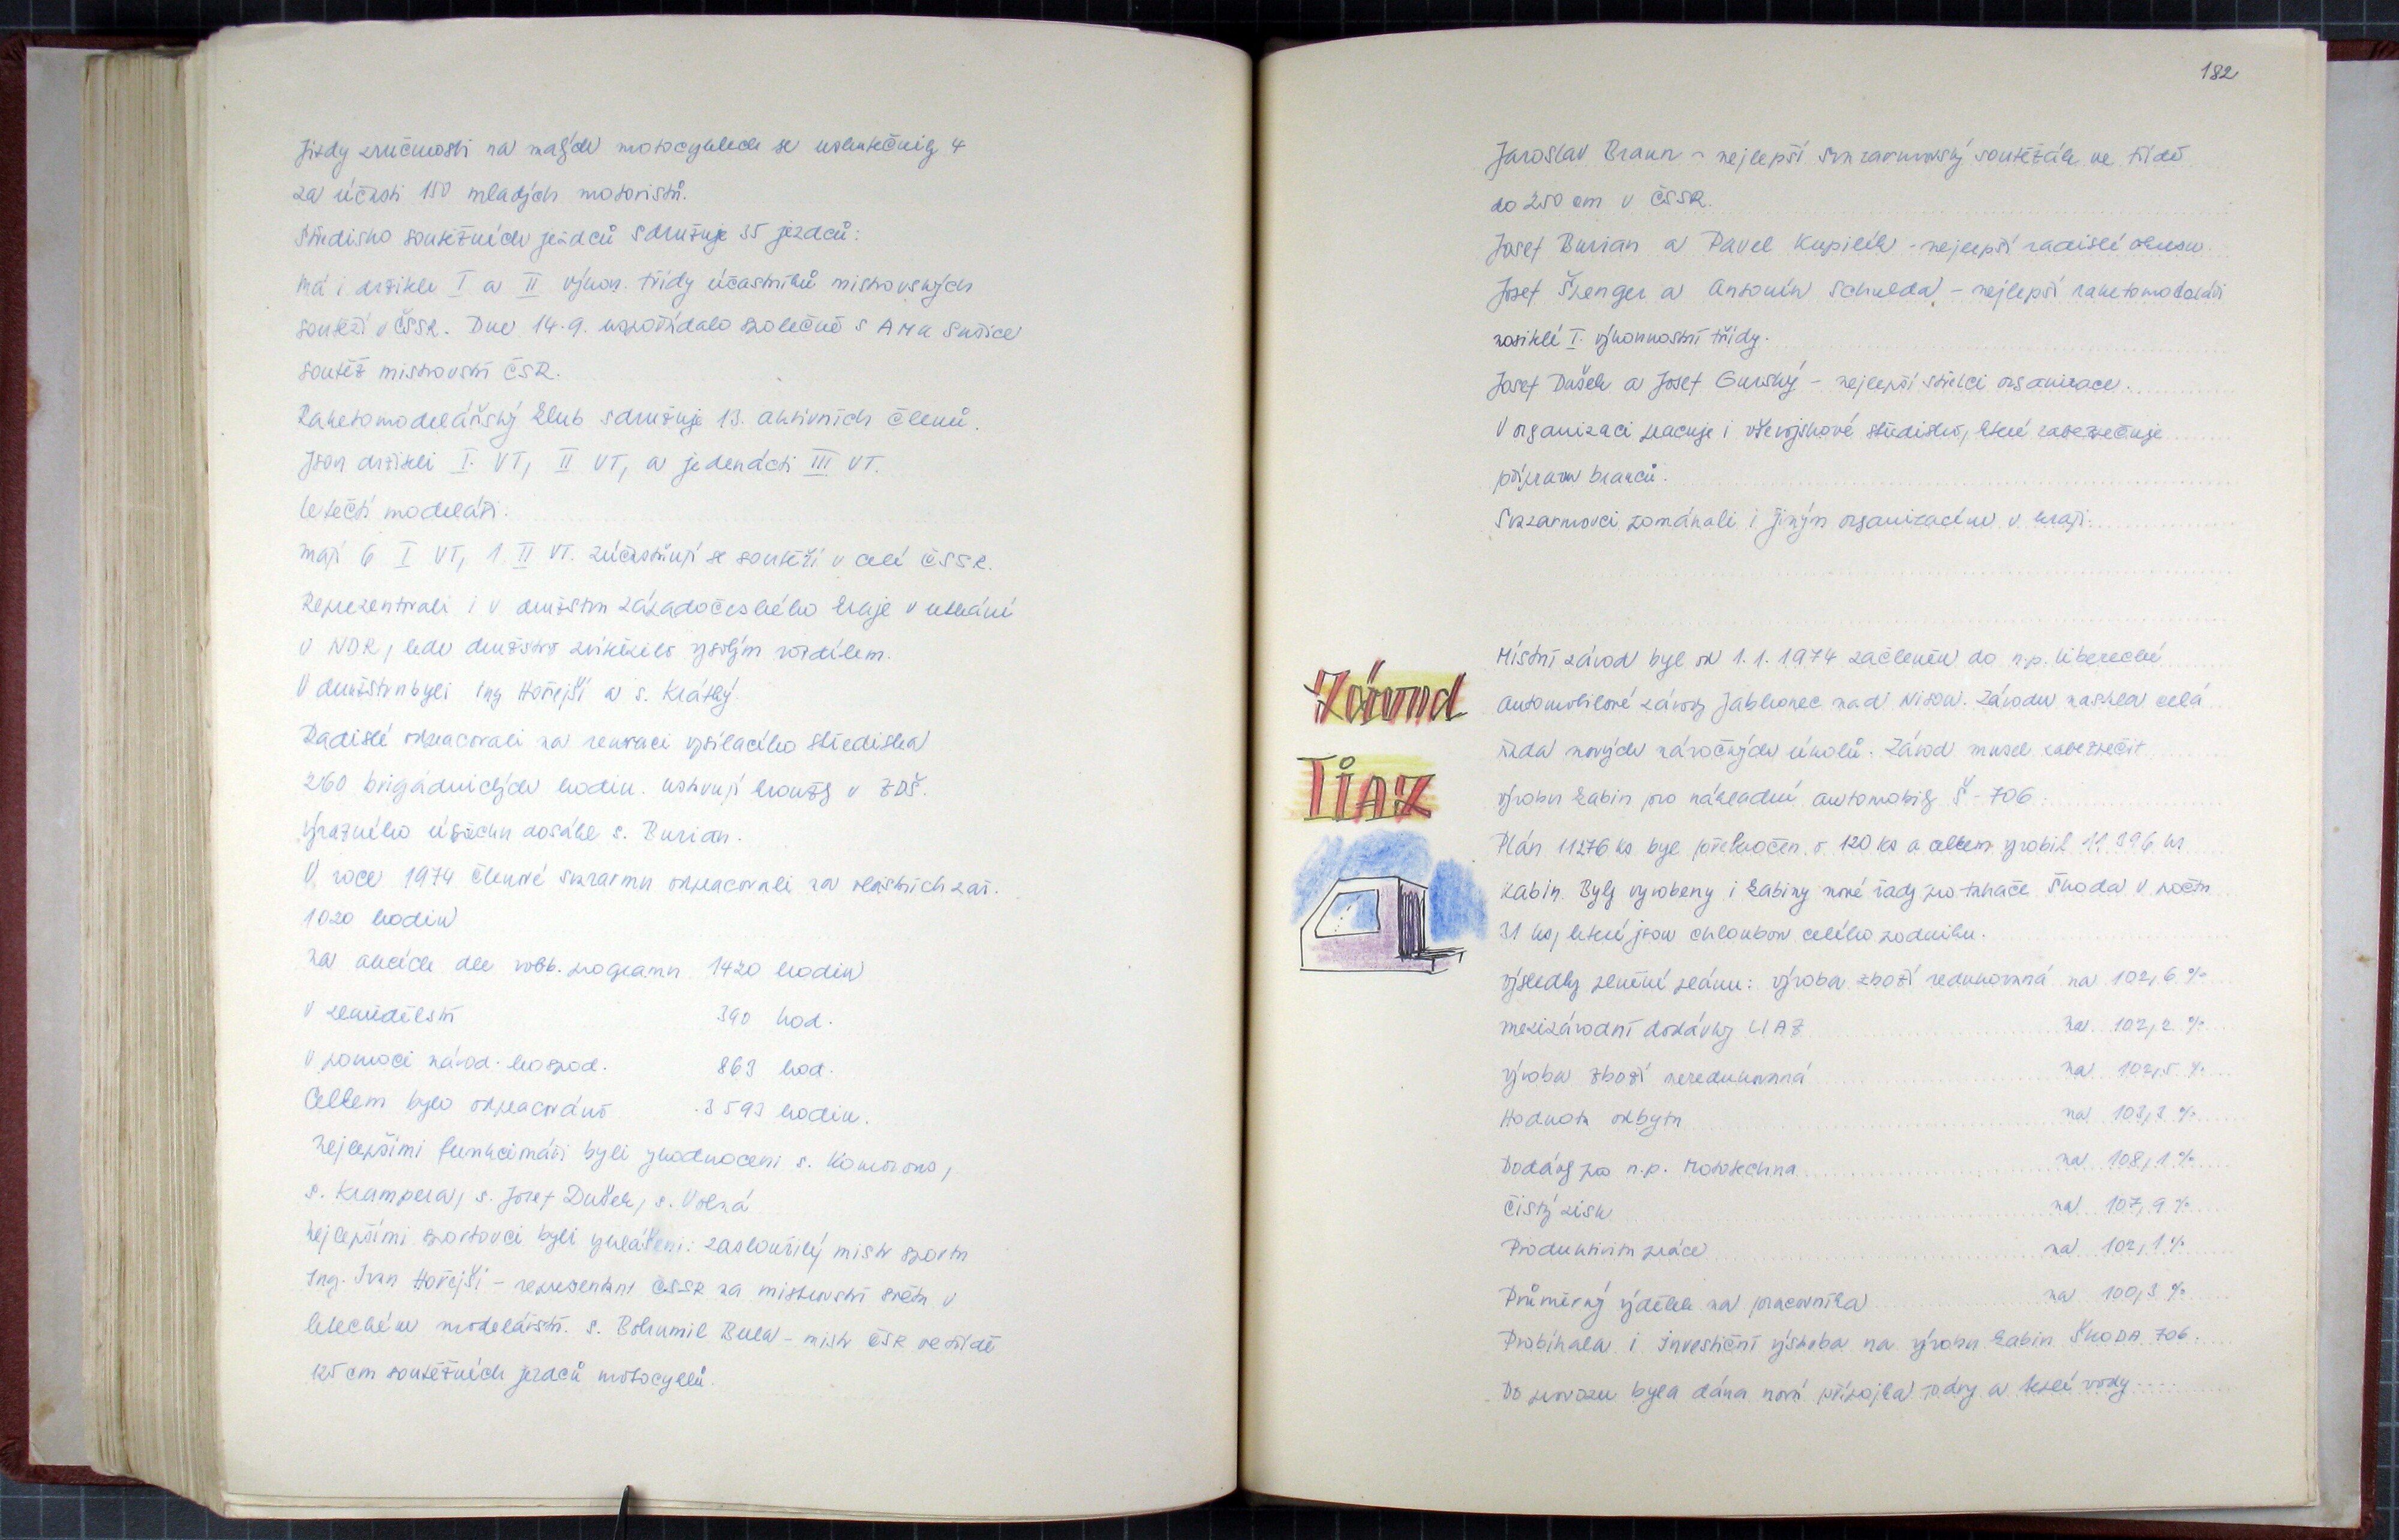 Jízdy zručnosti na malých motocyklech se uskutečnily 4
za účasti 150 mladých motoristů.
Středisko soutěžních jezdců sdružuje 35 jezdců:
má i držitele I a II výkon. třídy účastníků mistrovských
soutěží v ČSSR. Dne 14.9. uspořádalo společně s AMK Sušice
soutěž mistrovství ČSR.
Raketomodelářský klub sdružuje 13. aktivních členů.
Jsou držiteli I. VT, II VT, a jedenácti III VT.
Letečtí modeláři:
mají 6 I VT, 1 II VT. zúčastňují se soutěží v celé ČSSR.
Reprezentovali i v družstvu Západočeského kraje v utkání
v NDR, kde družstvo zvítězilo vysokým rozdílem.
V družstvu byli Ing Hořejší a s. Krátký.
Radisté odpracovali na renovaci vysílacího střediska
260 brigádnických hodin. ustavují kroužky v ZDŠ.
Výrazného úspěchu dosáhl s. Burian.
V roce 1974 členové svazarmu odpracovali na vlastních zař.
1020 hodin
na akcích dle volb. programu 1420 hodin
V zemědělství 390 hod.
V pomoci národ. hospod. 863 hod.
Celkem bylo odpracováno 3 593 hodin.
Nejlepšími funkcionáři byli vyhodnoceni s.
s. Krampera, s. Josef Dušek, s. Volná
Nejlepšími sportovci byli vyhlášeni: zasloužilý mistr sportu
Ing. Ivan Hořejší – reprezentant ČSSR na mistrovství světa v
leteckém modelářství. s. Bohumil Bula – mistr ČSR ve třídě
125 cm soutěžních jezdců motocyklů.
182
Jaroslav Braun – nejlepší svazarmovský soutěžák ve třídě
do 250 cm v ČSSR.
Josef Burian a Pavel Kupilík – nejlepší radisté okresu.
Josef Špenger a Antonín Schulda – nejlepší raketomodeláři
nositelé I. výkonnostní třídy.
Josef Dušek a Josef Gurský – nejlepší střelci organizace.
V organizaci pracuje i všvojskové středisko, které zabezpečuje
přípravu branců.
Svazarmovci pomáhali i jiným organizacím v kraji.
Závod
Liaz
Místní závod byl od 1.1.1974 začleněn do n.p. Liberecké
automobilové závody Jablonec nad Nisou. Závodu nastala celá
řada nových náročných úkolů. Závod musel zabezpečit
výrobu kabin pro nákladní automobily Š-706.
Plán 11276 ks byl překročen o 120 ks a celkem vyrobil 11.396 ks
kabin. Byly vyrobeny i kabiny nové řady pro tahače Škoda v počtu
31 ks, které jsou chloubou celého podniku.
Výsledky plnění plánu: výroba zboží redukovaná na 102,6 %
mezizávodní dodávky LIAZ na 102,2 %
výroba zboží neredukovaná na 102,5 %
Hodnota odbytu na 103,3 %
Dodávky pro n.p. Mototechna na 108,1 %
Čistý zisk na 107,9 %
Produktivita práce na 102,1 %
Průměrný výdělek na pracovníka na 100,3 %
Probíhala i investiční výstavba na výrobu kabin ŠKODA 706.
Do provozu byla dána nová přípojka vody a teplé vody